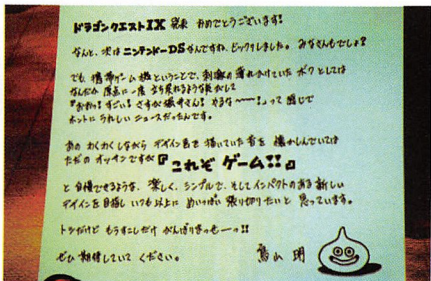 ドラゴンクエストIX 発表 おめでとうございます!
なんと、次は ニンテンドーDS なんですね、ビックリしました。 みなさんもでしょ?
でも 携帯ゲーム機ということで、刺激の薄れかけていた ボクとしては
なんだか 原点に一度 立ち戻れるような気がして
『おおっ! すごい! さすが堀井さん! やるな~~!』って 感じで
ホントに うれしい ニュースだったんです。
あの わくわくしながら デザイン画を 描いていた昔を 懐かしんでいては
ただの オッサンですが 『これぞ ゲーム!!』
と 自慢できるような、 楽しく、シンプルで、そして インパクトのある 新しい
デザインを 目指し いつも以上に めいっぱい 張り切りたいと 思っています。
トシだけど もうすこしだけ がんばりまっせーっ!!
ぜひ 期待していて ください。 鳥山 明